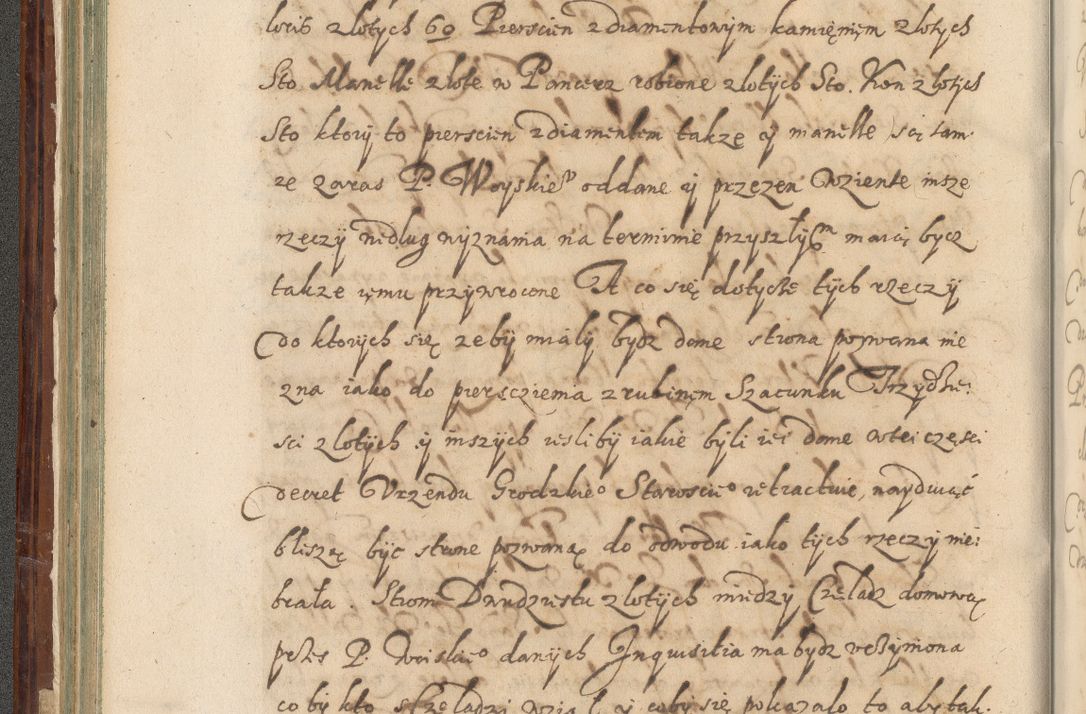 loris zlotych 60 Pierscien zdiamentowym kamięniem zlotych
Sto Manelle zlote w Pancerz robione zlotÿch Sto. Kon zlotych
Sto ktorÿ to pierscien zdiamentem takze ÿ manelle są tam
ze zaras P. Woyskiey oddane ÿ przezen wziente insze
rzeczÿ wedlug wyznania na terminie przyszłÿm maią bycz
takze iemu przywrocone A co się dotycze tÿch rzeczÿ
do ktorych się zebÿ mialÿ bÿdz dane strona pozwana nie
zna iako do piersczięnia z rubinęm Szacunku Trzÿdzie:
sci zlotÿch ÿ inszÿch ieslibÿ iakie bÿli iei dane wtei części
decret Vrzendu Grodzkieo Staroscieo retractuie, nayduiąc
bliszą bÿc strone pozwaną do odwodu iako tÿch rzeczÿ nie:
brała. Strom Dwudziestu zlotÿch miedzÿ Czeladz domową
przes P. Woiskieo danÿch Inquisitia ma bÿdz uczÿniona
co bÿ kto sczeladzi wziął ÿ cobÿ się pokazalo to abÿ tak